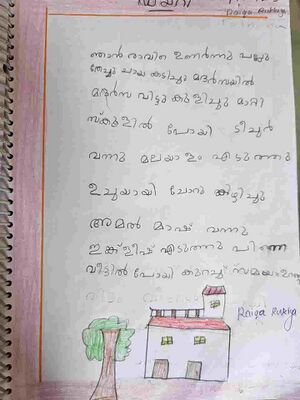 ഡയറി
Raiga Rukiya
ഞാൻ രാവിലെ ഉണർന്നു പല്ലു
തേച്ചു ചായ കുടിച്ചു മദ്രസയിൽ
മദ്രസ വിട്ടു കുളിച്ചു മാറ്റി
സ്കൂളിൽ പോയി ടീച്ചർ
വന്നു മലയാളം എടുത്തു
ഉച്ചയായി ചോറു കഴിച്ചു
അമൽ മാഷ് വന്നു
ഇംഗ്ലീഷ് എടുത്തു പിന്നെ
വീട്ടിൽ പോയി കുറച്ച് സമയം
Raiga Rukiya